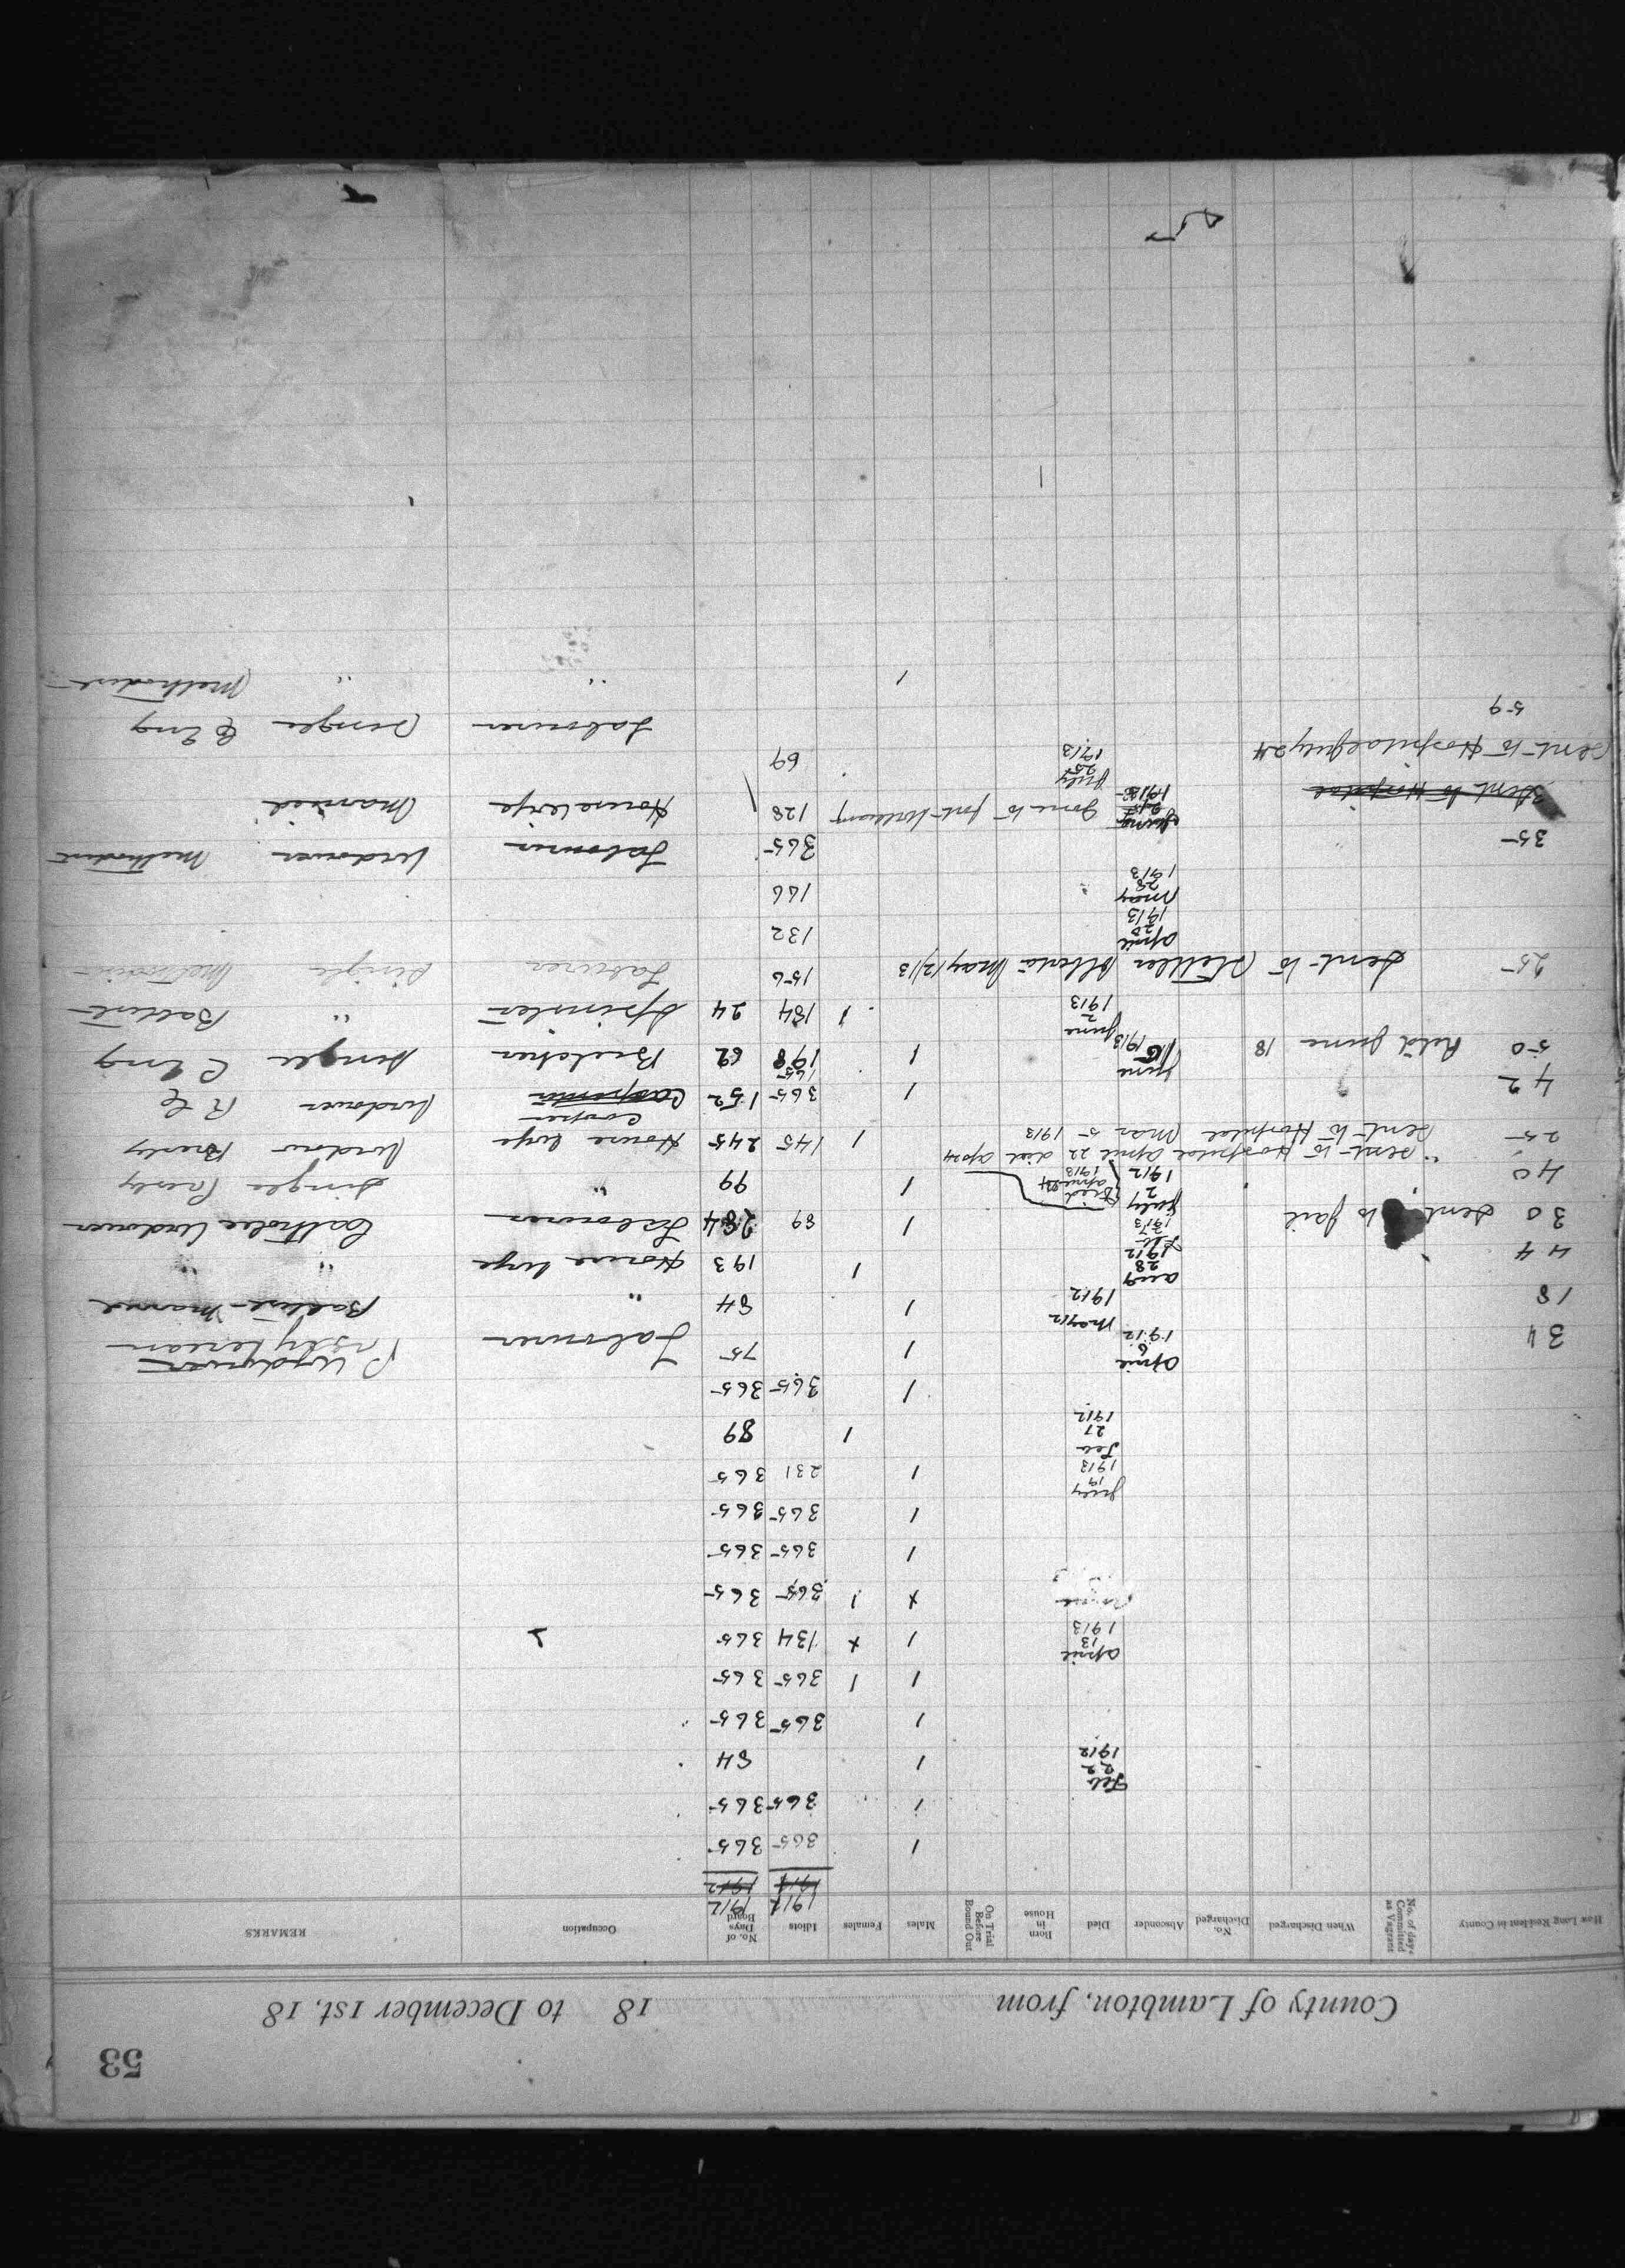 53
County of Lambton, from 18 to December 1st, 18
How Long Resident in County No. of days Committed as Vagrant When Discharged No. Discharged Absconder Died Born in House On Trial Before Bound Out Males Females Idiots No. of Days Board Occupation REMARKS
1912 1912
1914 1912
1 365 365
1 365 365
Feb 22 1912 1 84
1 365 365
1 1 365 365
April 13 1913 1 x 134 365
x 1 365 365
1 365 365
1 365 365
July 19 1913 1 231 365
Feb 27 1912 1 89
1 365 365
34 April 6 1912 1 75 Labourer Presbyterian Widower
18 May 12 1912 1 84 " Babtist Married
44 Aug 28 1912 1 193 House wife " "
30 Sent to Jail Feb 7 1913 1 89 284 Labourer Catholic Widower
40 July 2 1912 Died April 24 1913 1 99 " Single Presby
" Sent to Hospital April 22 died Ap 24
25 Sent to Hospital Mar 5 1913 1 145 245 House wife Widow Presby
42 1 365 152 Cooper Widower R C
165
50 Retd June 18 June 15 1913 1 198 62 Butcher Single C Eng
June 2 1913 1 184 24 Spinster " Babtist
25 Sent to Stettler Alberta May 12/13 156 Labourer Single Methodist
April 28 1913 132
May 28 1913 166
35 365 Labourer Widower Methodist
Sent to Hospital June 24 1913 Gone to Fort William 128 House Wife Married
Sent to Hospital July 24 July 25 1913 69
59 Labourer Single C Eng
1 " " Methodist